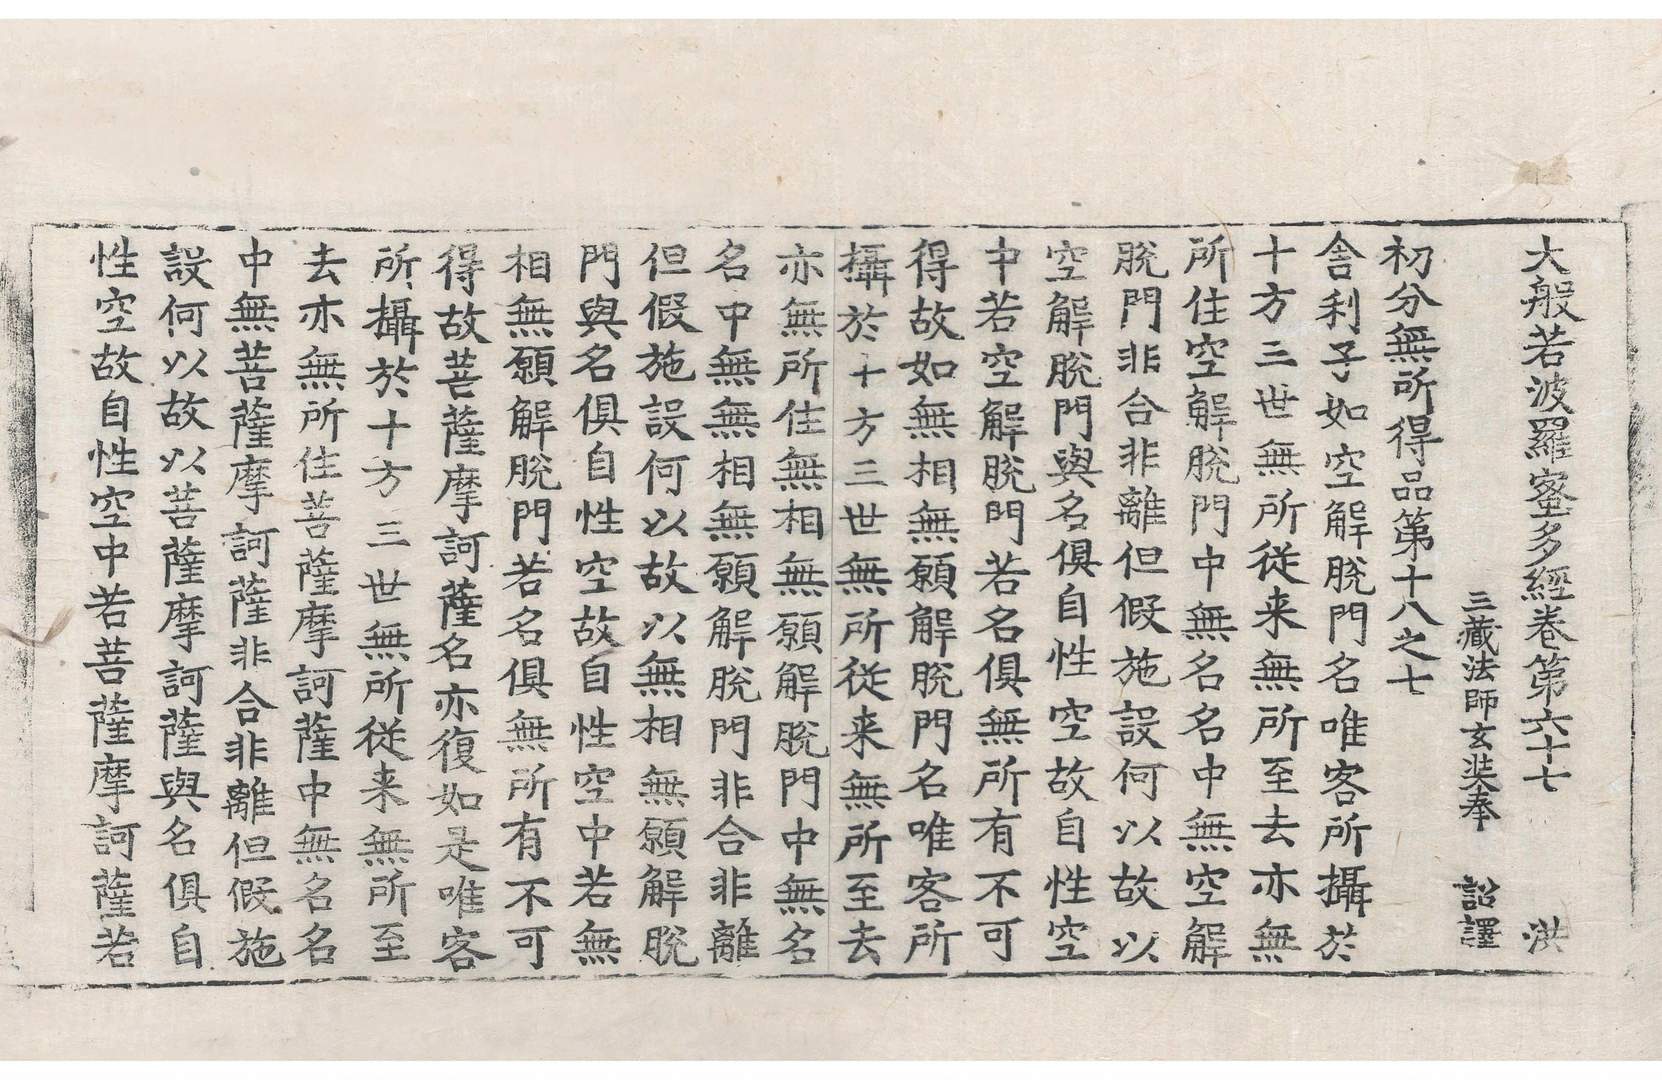 大般若波羅蜜多經卷第六十七 洪
三藏法師玄奘奉 詔譯
初分無所得品第十八之七
舍利子如空解脫門名唯客所攝於
十方三世無所從来無所至去亦無
所住空解脫門中無名名中無空解
脫門非合非離但假施設何以故以
空解脫門與名俱自性空故自性空
中若空解脫門若名俱無所有不可
得故如無相無願解脫門名唯客所
攝於十方三世無所從来無所至去
亦無所住無相無願解脫門中無名
名中無無相無願解脫門非合非離
但假施設何以故以無相無願解脫
門與名俱自性空故自性空中若無
相無願解脫門若名俱無所有不可
得故菩薩摩訶薩名亦復如是唯客
所攝於十方三世無所從来無所至
去亦無所住菩薩摩訶薩中無名名
中無菩薩摩訶薩非合非離但假施
設何以故以菩薩摩訶薩與名俱自
性空故自性空中若菩薩摩訶薩若